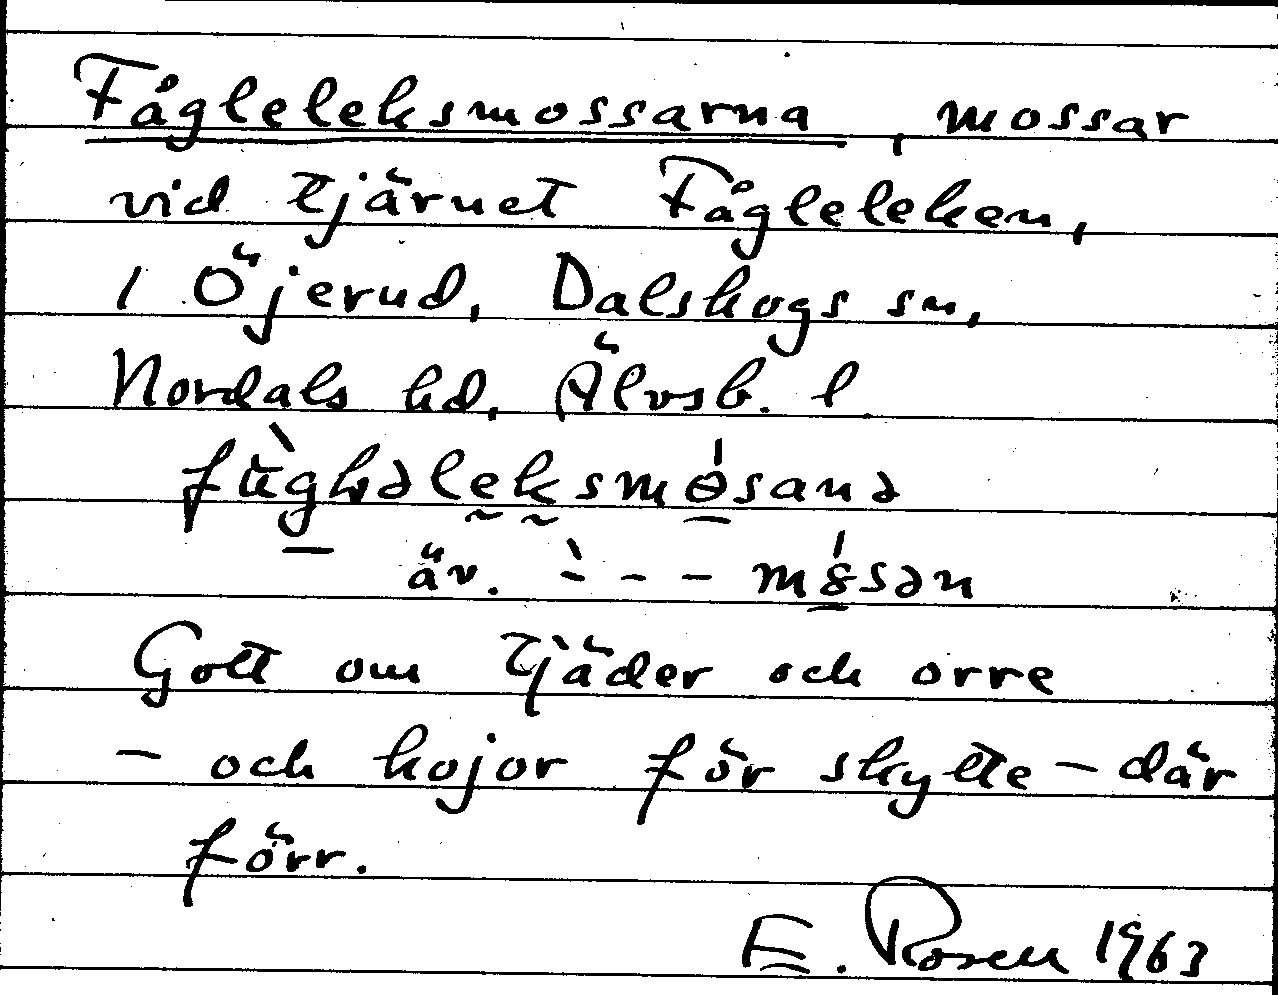 Fågleleksmossarna, mossar
vid tjärnet Fågleleken,
i Öjerud, Dalskogs sn,
Nordals hd, Älvsb. l.
fùghəleksmɵ́sanə
äv. `- - - mɵ́sən
Gott om tjäder och orre
- och kojor för skytte - där
förr.
E. Rosen 1963